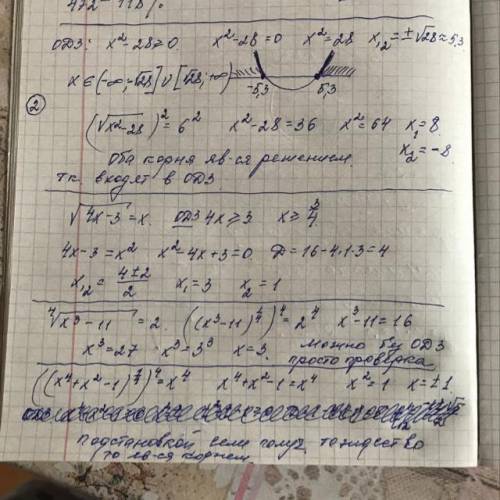 472 - 118%
ОДЗ: x²-28≥0 x²-28=0 x²=28 x₁,₂=±√28≈5,3
x∈(-∞;-√28]∪[√28;+∞) -5,3 5,3
② (√x²-28)²=6² x²-28=36 x²=64 x₁=8
x₂=-8
Оба корня яв-ся решением
т.к. входят в ОДЗ.
√4x-3=x. ОДЗ 4x≥3 x≥3/4
4x-3=x² x²-4x+3=0 D=16-4·1·3=4
x₁,₂=(4±2)/2 x₁=3 x₂=1
⁴√x³-11=2. ((x³-11)^¼)⁴=2⁴ x³-11=16
x³=27 x³=3³ x=3. Можно без ОДЗ
просто проверка
((x⁴+x²-1)^¼)⁴=x⁴ x⁴+x²-1=x⁴ x²=1 x=±1
подстановкой если получ тождество
то яв-ся корнем